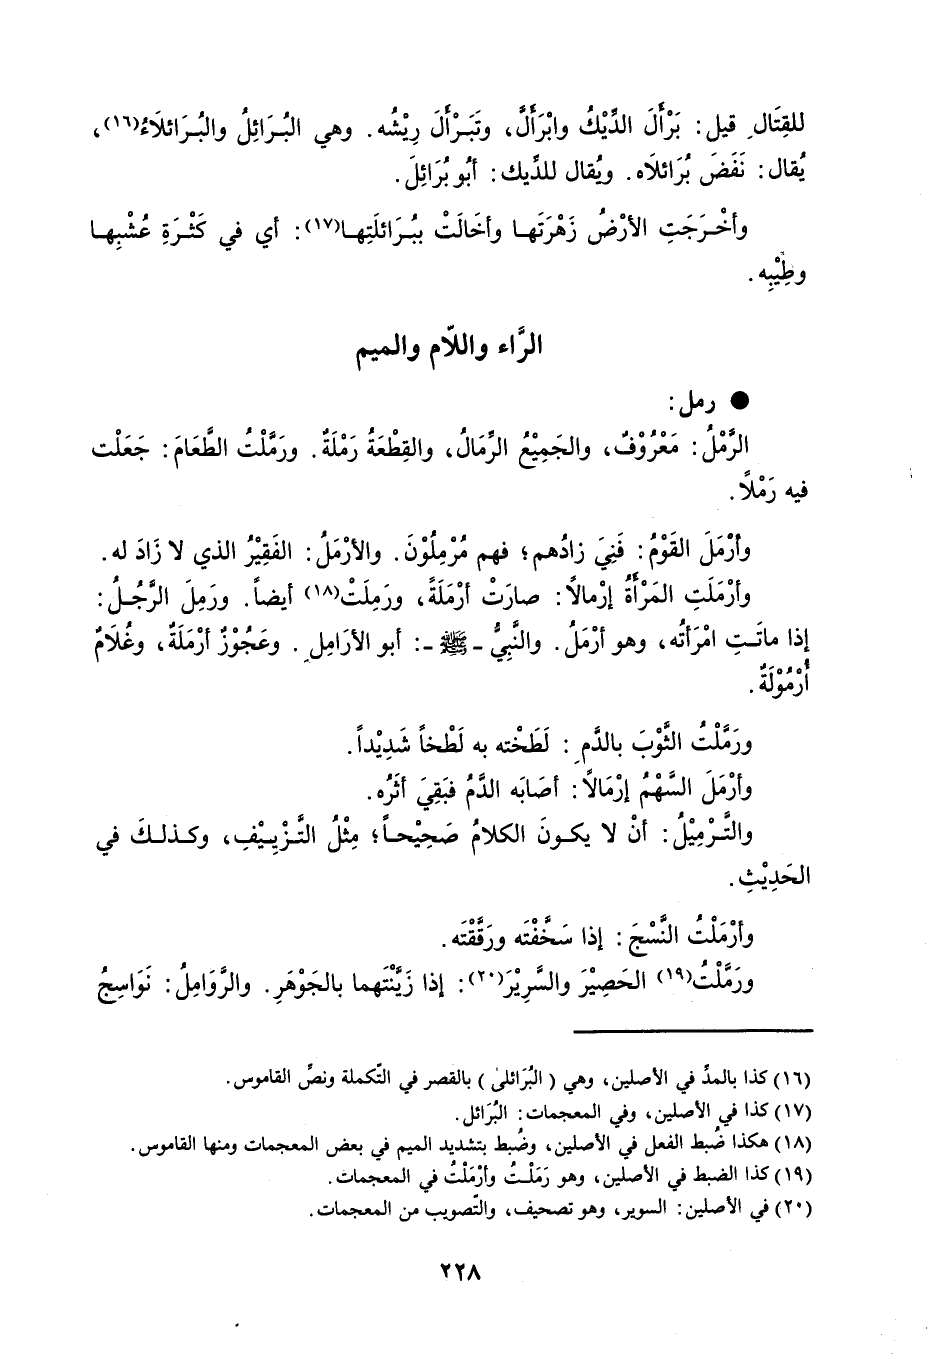 للقِتَالِ قيل: بَرْأَلَ الدِّيْكُ وابْرَأَلَّ، وتَبَرْأَلَ رِيْشُه. وهي البُرَائِلُ والبُرَائلَاءُ(١٦)،
يُقال: نَفَضَ بُرَائلَاه. ويُقال للدِّيك: أبُو بُرَائِلَ.
وأخْرَجَتِ الأرْضُ زَهْرَتَها وأخَالَتْ بِبُرَائلَتِها(١٧): أي في كَثْرَةِ عُشْبِها
وطِيْبِه.
الرَّاء واللّام والميم
● رمل:
الرَّمْلُ: مَعْرُوْفٌ، والجَمِيْعُ الرِّمَالُ، والقِطْعَةُ رَمْلَةٌ. ورَمَّلْتُ الطَّعَامَ: جَعَلْت
فيه رَمْلاً.
وأرْمَلَ القَوْمُ: فَنِيَ زادُهم؛ فهم مُرْمِلُوْنَ. والأرْمَلُ: الفَقِيْرُ الذي لا زَادَ له.
وأرْمَلَتِ المَرْأةُ إرْمالاً: صارَتْ أرْمَلَةً، ورَمِلَتْ(١٨) أيضاً. ورَمِلَ الرَّجُلُ:
إذا ماتَتِ امْرَأتُه، وهو أرْمَلُ. والنَّبِيُّ ـ ﷺ ـ: أبو الأرَامِلِ. وعَجُوْزٌ أرْمَلَةٌ، وغُلَامٌ
أُرْمُوْلَةٌ.
ورَمَّلْتُ الثَّوْبَ بالدَّمِ: لَطَخْته به لَطْخاً شَدِيْداً.
وأرْمَلَ السَّهْمُ إرْمَالاً: أصَابَه الدَّمُ فبَقِيَ أثَرُه.
والتَّرْمِيْلُ: أنْ لا يكونَ الكلامُ صَحِيْحاً؛ مِثْلُ التَّزْيِيْفِ، وكذلكَ في
الحَدِيْثِ.
وأرْمَلْتُ النَّسْجَ: إذا سَخَّفْتَه ورَقَّقْتَه.
ورَمَّلْتُ(١٩) الحَصِيْرَ والسَّرِيْرَ(٢٠): إذا زَيَّنْتَهما بالجَوْهَرِ. والرَّوَامِلُ: نَوَاسِجُ
(١٦) كذا بالمدِّ في الأصلين، وهي (البُرَائلىٰ) بالقصر في التّكملة ونصِّ القاموس.
(١٧) كذا في الأصلين، وفي المعجمات: البُرَائل.
(١٨) هكذا ضُبط الفعل في الأصلين، وضُبط بتشديد الميم في بعض المعجمات ومنها القاموس.
(١٩) كذا الضبط في الأصلين، وهو رَمَلْتُ وأرْمَلْتُ في المعجمات.
(٢٠) في الأصلين: السوير، وهو تصحيف، والتّصويب من المعجمات.
٢٢٨